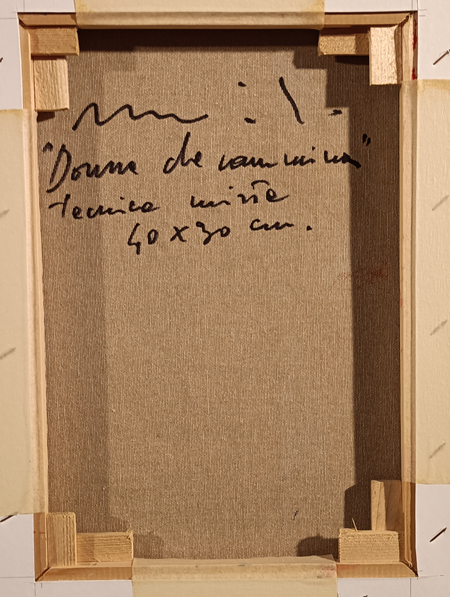 "Donna che cammina"
tecnica mista
40 x 30 cm.